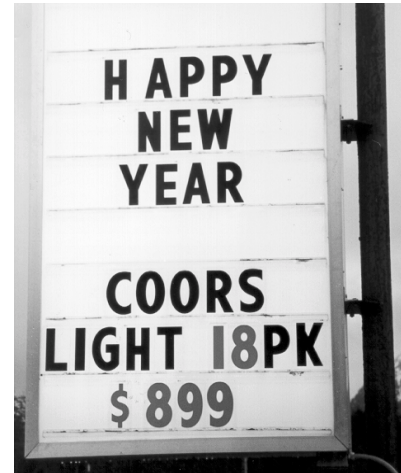 HAPPY
NEW
YEAR
COORS
LIGHT 18PK
$899